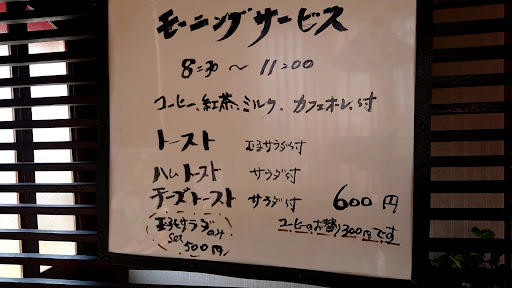 モーニングサービス
8:30 〜 11:00
コーヒー、紅茶、ミルク、カフェオーレ付
トースト 玉子サラダ付
ハムトースト サラダ付
チーズトースト サラダ付 600円
玉子とサラダのみ
set
500円
コーヒーのお替り300円です